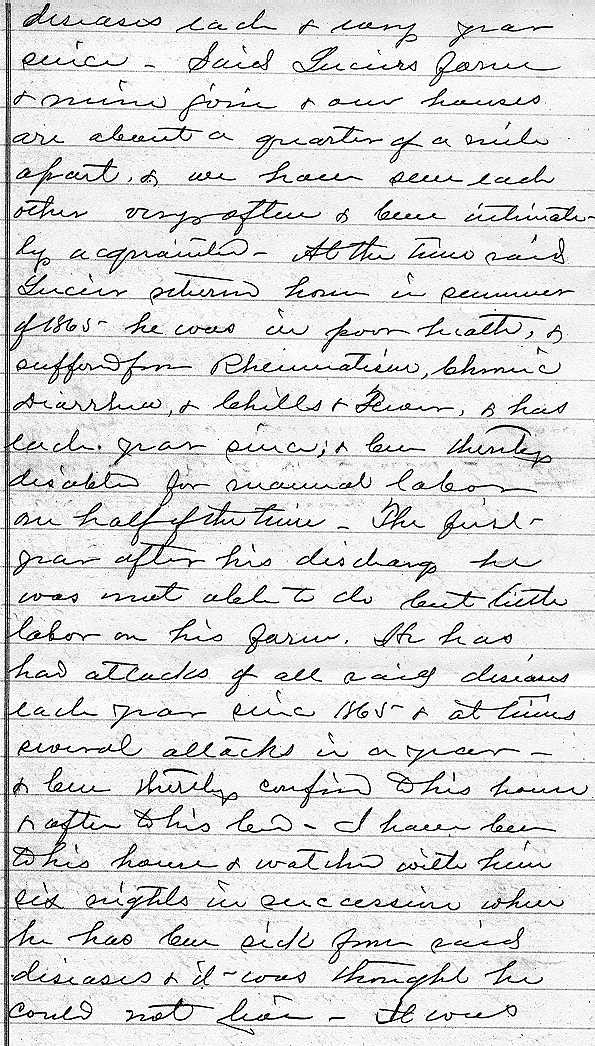 diseases each & every year
since - Said Lucius farm
& mine join & our houses
are about a quarter of a mile
apart, & we have seen each
other very often & been intimate-
ly acquainted - At the time said
Lucius returned home in summer
of 1865 he was in poor health, &
suffered from Rheumatism, Chronic
Diarrhea, & Chills & Fever, & has
each year since; & been thereby
disabled for manual labor
one half of the time - The first
year after his discharge he
was not able to do but little
labor on his farm. He has
had attacks of all said diseases
each year since 1865 & at times
several attacks in a year -
& been thereby confined to his house
& often to his bed - I have been
to his house & watched with him
six nights in succession when
he has been sick from said
diseases & it was thought he
could not live - It was